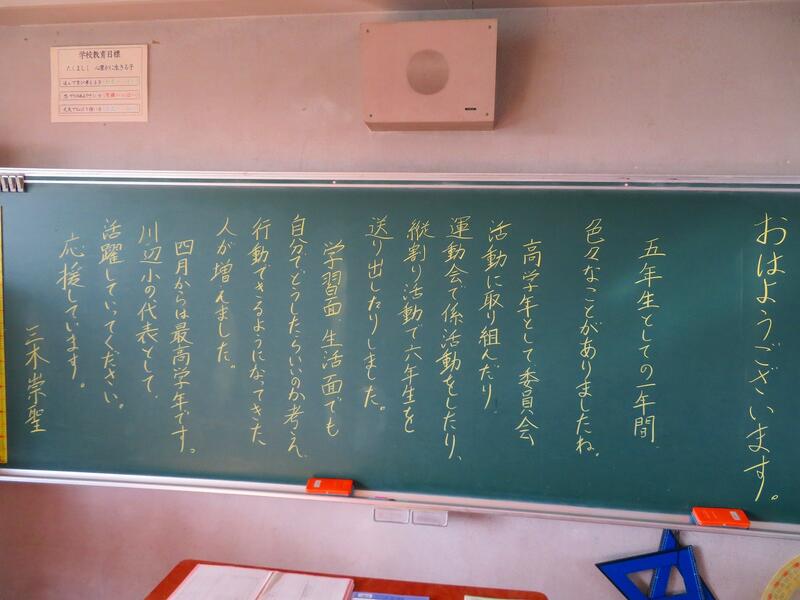 おはようございます。
五年生としての一年間
色々なことがありましたね。
高学年として委員会
活動に取り組んだり
運動会で係活動をしたり、
縦割り活動で六年生を
送り出したりしました。
学習面 生活面でも
自分でどうしたらいいのか考え
行動できるようになってきた
人が増えました。
四月からは最高学年です。
川辺小の代表として、
活躍していってください。
応援しています。
三木崇聖
学校教育目標
たくましく 心豊かに生きる子